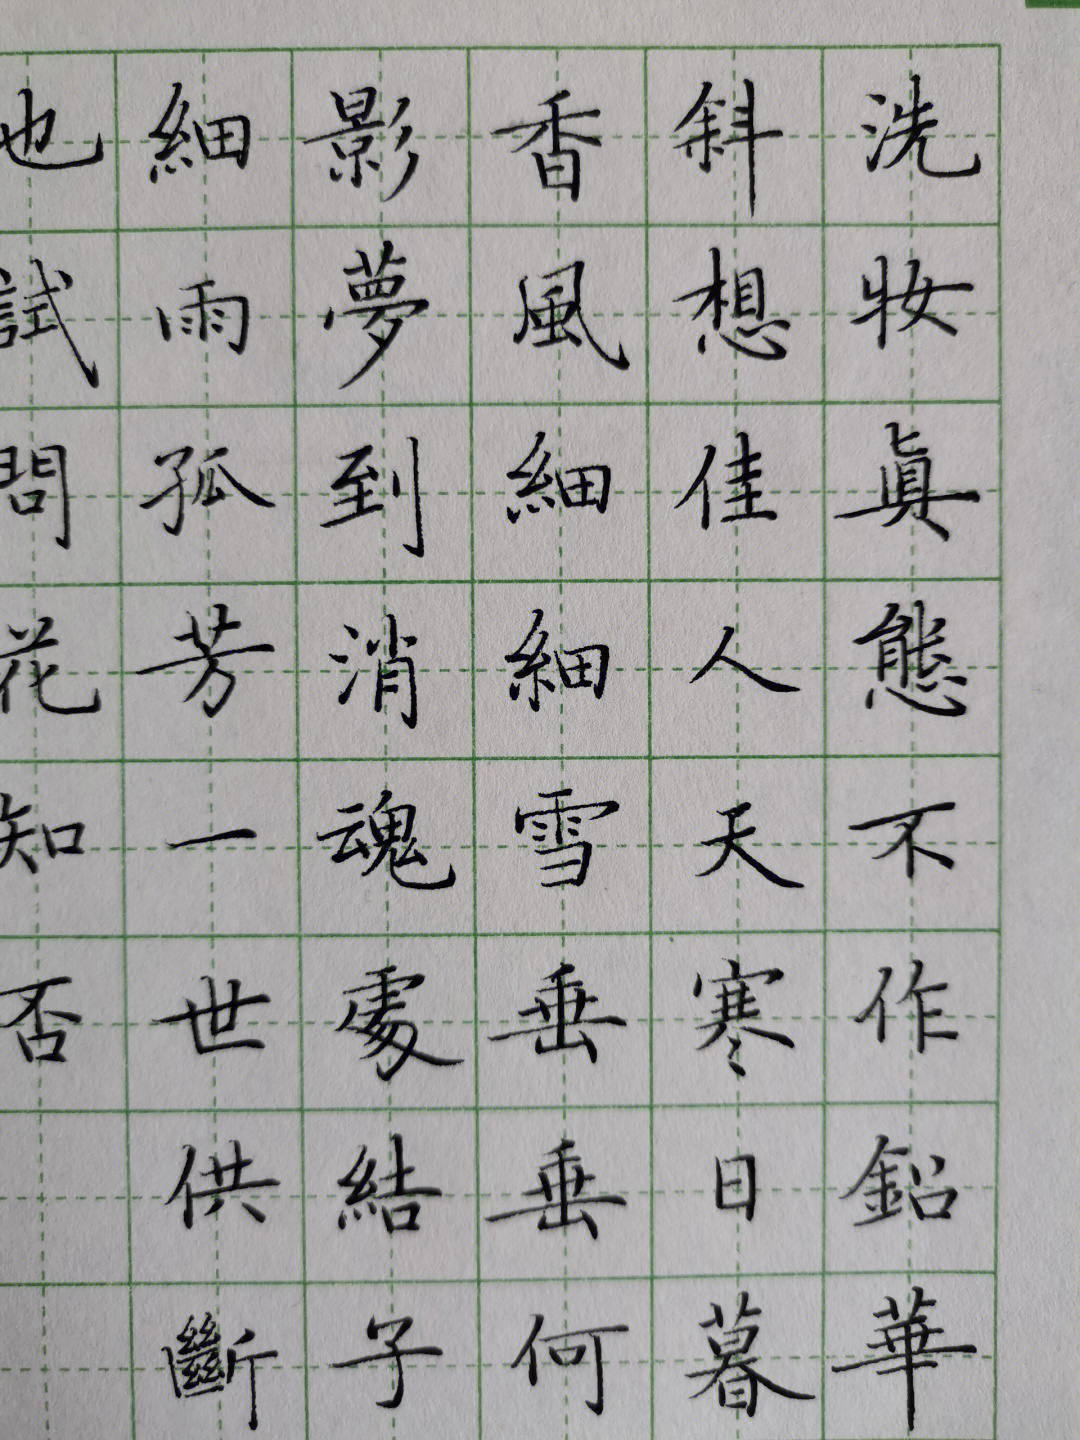 洗妝眞態不作鉛華
斜想佳人天寒日暮
香風細細雪垂垂何
影夢到消魂處結子
細雨孤芳一世供斷
也試問花知否